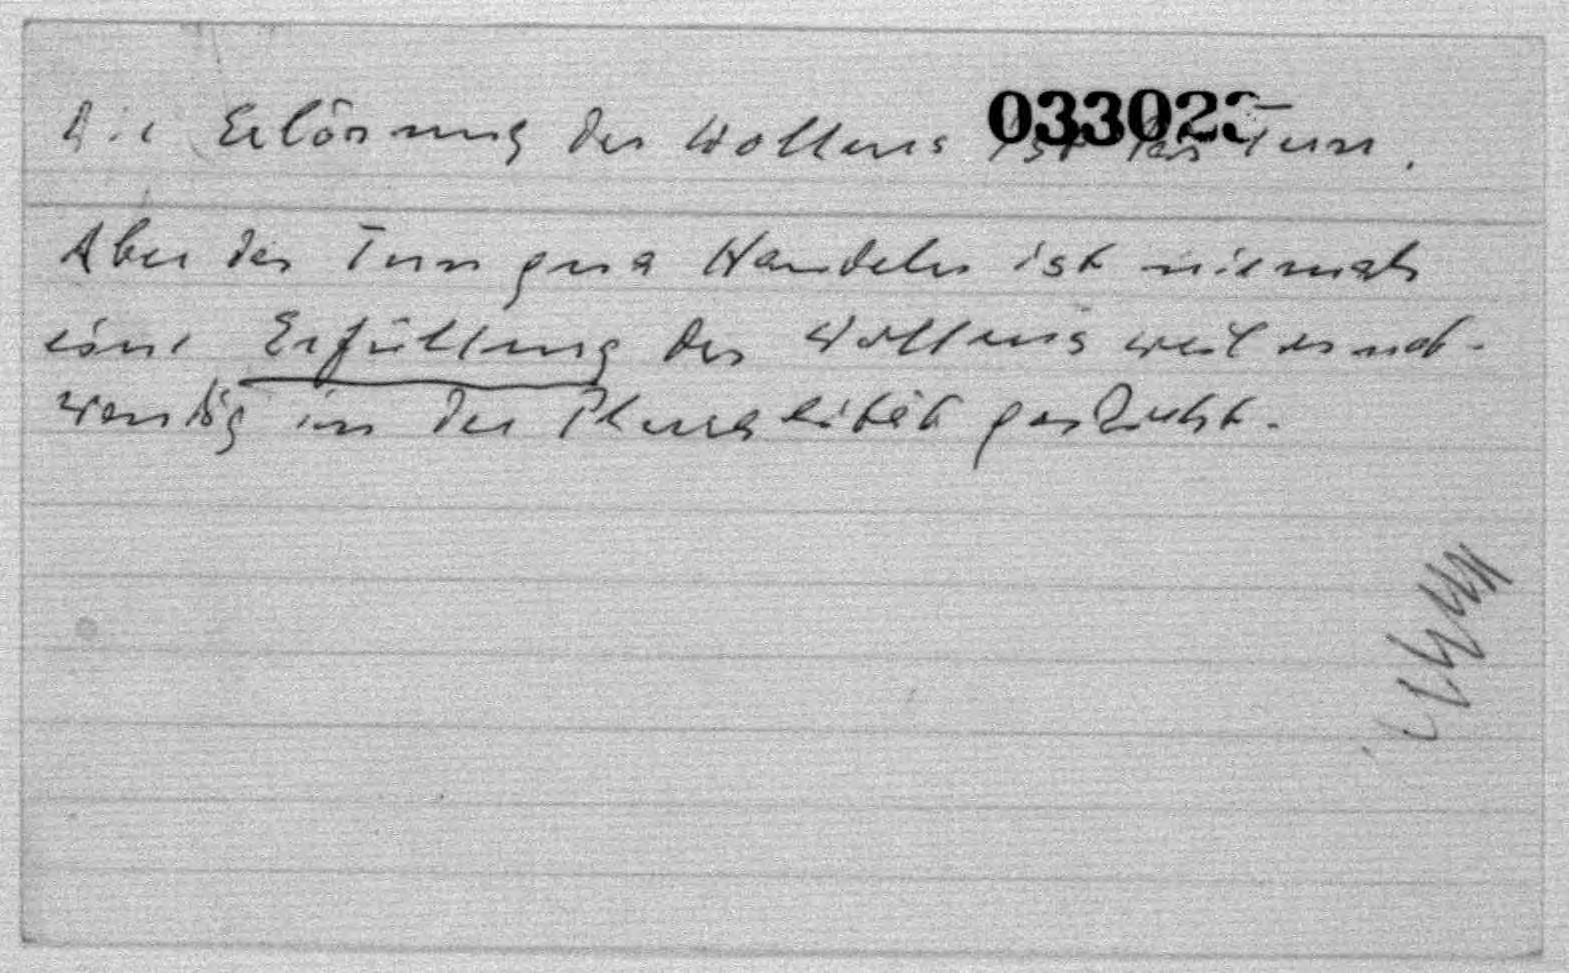 Die Erlösung des Wollens ist das Tun.
Aber das Tun qua Handeln ist niemals
eine Erfüllung des Wollens weil es not-
wendig in der Pluralität geschieht.